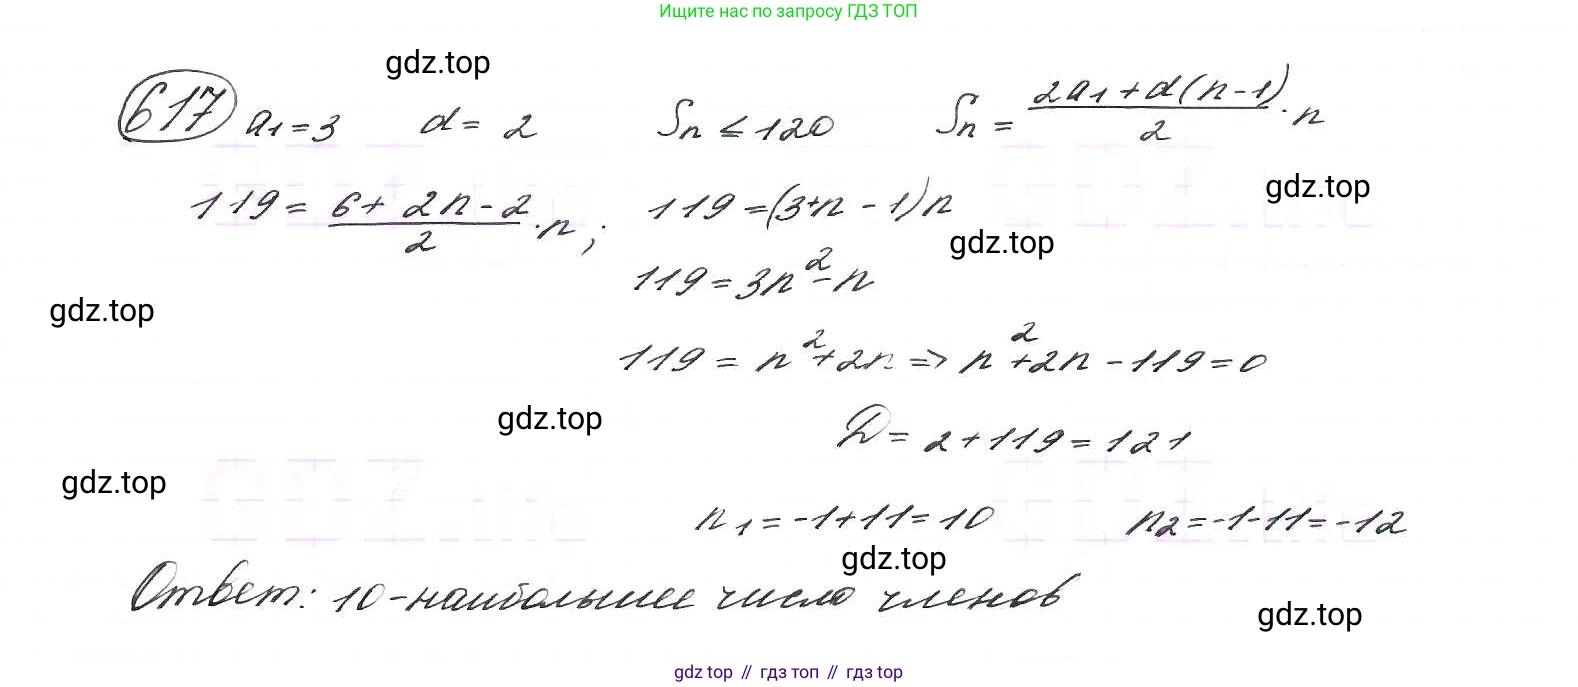 Ищите нас по запросу ГДЗ ТОП
gdz.top
617 a₁ = 3 d = 2 Sₙ ≤ 120 Sₙ = (2a₁ + d(n-1))/2 · n
gdz.top
119 = (6 + 2n - 2)/2 · n; 119 = (3+n - 1)n
gdz.top
119 = 3n² - n
gdz.top
119 = n² + 2n => n² + 2n - 119 = 0
gdz.top
D = 2 + 119 = 121
gdz.top
n₁ = -1 + 11 = 10 n₂ = -1 - 11 = -12
gdz.top
Ответ: 10 - наибольшее число членов
gdz.top
gdz top // гдз топ // гдз top